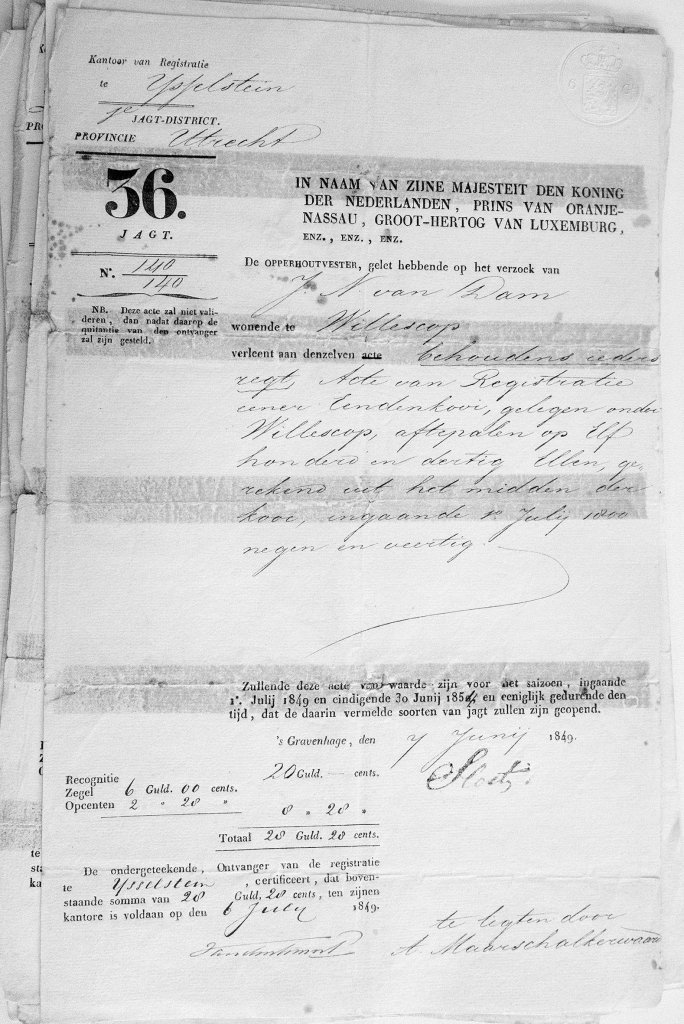 Kantoor van Registratie
te Ysselstein
1e JAGT-DISTRICT.
PROVINCIE Utrecht
36.
JAGT.
N°. 140
140
NB. Deze acte zal niet vali-
deren, dan nadat daarop de
quitantie van den ontvanger
zal zijn gesteld.
IN NAAM VAN ZIJNE MAJESTEIT DEN KONING
DER NEDERLANDEN, PRINS VAN ORANJE-
NASSAU, GROOT-HERTOG VAN LUXEMBURG,
ENZ., ENZ., ENZ.
De OPPERHOUTVESTER, gelet hebbende op het verzoek van
J. N van Dam
wonende te Willescop
verleent aan denzelven acte behoudens ieders
regt, Acte van Registratie
eener Eendenkooi, gelegen onder
Willescop, aftepalen op Elf
honderd en dertig Ellen, ge-
rekend uit het midden der
kooi, ingaande 1o July 1800
negen en veertig.
Zullende deze acte van waarde zijn voor het saizoen, ingaande
1°. Julij 1849 en eindigende 30 Junij 1854 en eeniglijk gedurende den
tijd, dat de daarin vermelde soorten van jagt zullen zijn geopend.
's Gravenhage, den 7 Junij 1849.
Recognitie 20 Guld. — cents.
Zegel 6 Guld. 00 cents.
Opcenten 2 " 28 "
8 " 28 "
Totaal 28 Guld. 28 cents.
De ondergeteekende, Ontvanger van de registratie
te Ysselstein, certificeert, dat boven-
staande somma van 28 Guld. 28 cents, ten zijnen
kantore is voldaan op den 6 July 1849.
te legten door
A. Maarschalkerwaard